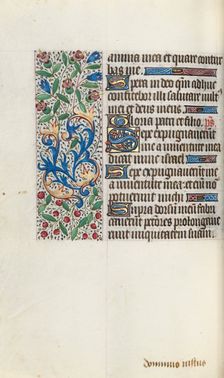 anima mea et quare contur
bas me.
Spera in deo qm̄ adhuc
confitebor illi salutare vult'
mei et deus meus.
Gloria patri et filio. ps
Sepe expugnaverunt
me a iuventute mea
dicat nunc israel
Sepe expugnaverunt me
a iuventute mea et eni͂ no͂
potuerunt michi
Supra dorsu͂ meu͂ fabri
caverunt pctōres prolongave
runt iniquitatem suam.
dominus iustus